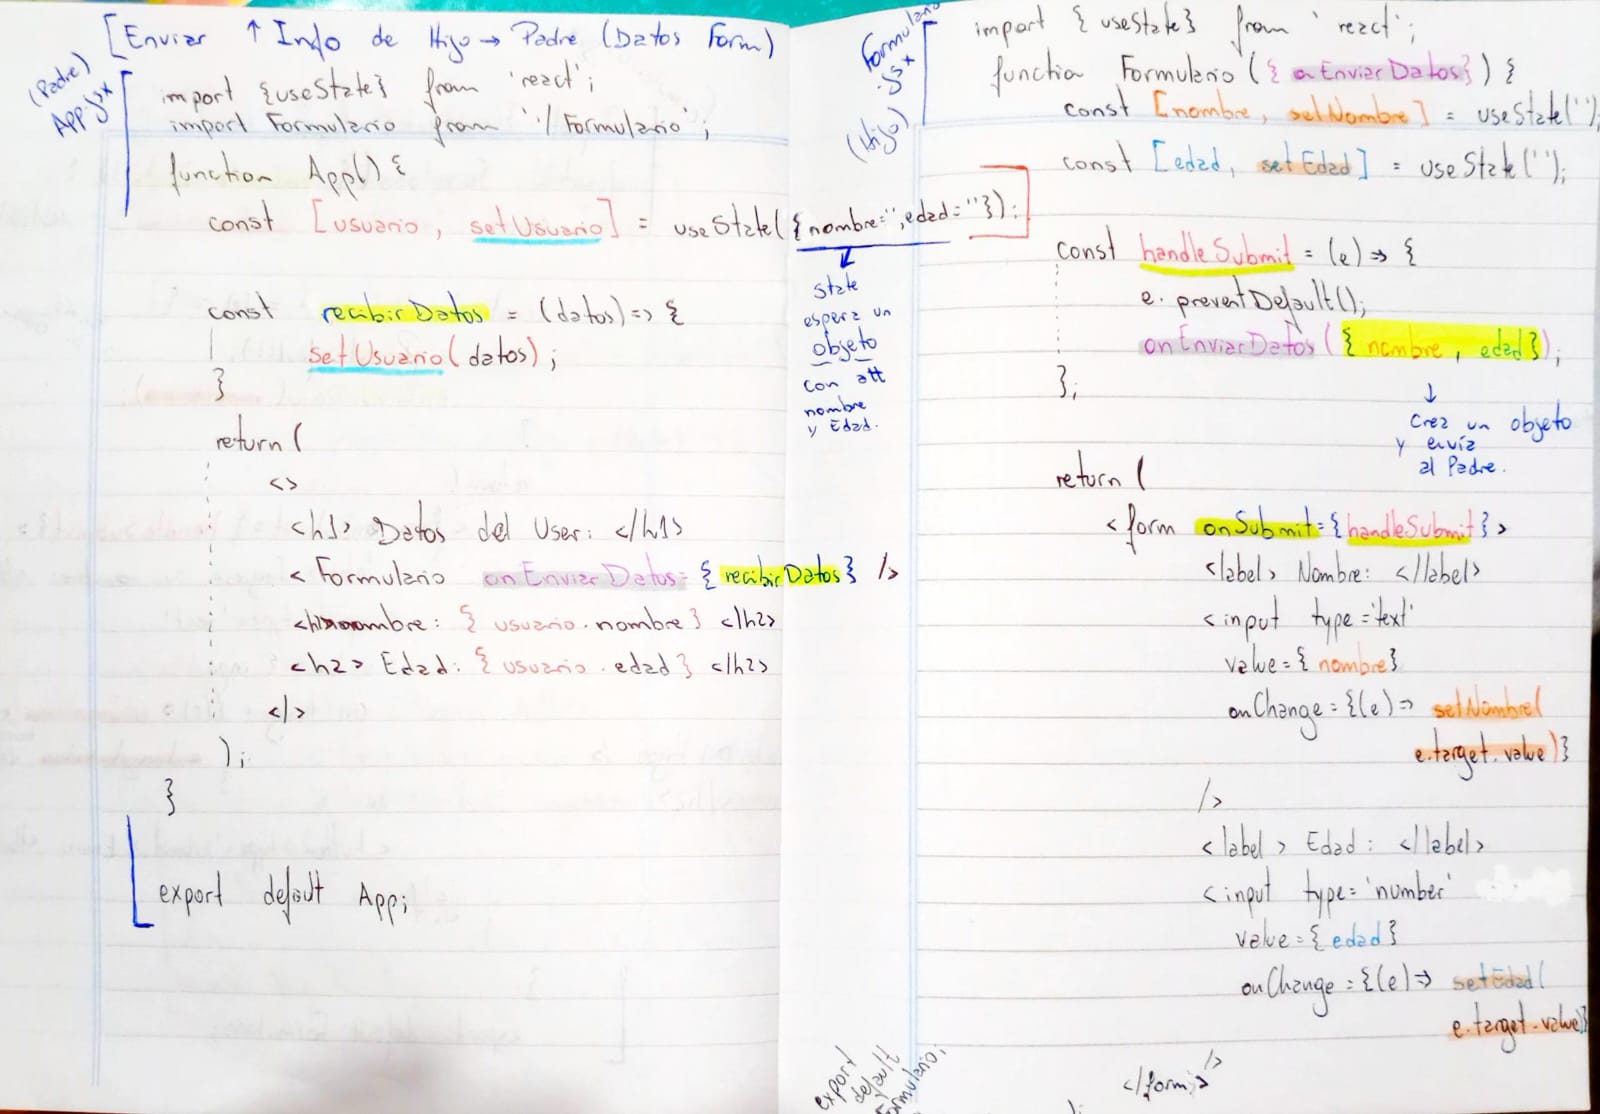 [Enviar ↑ Info de Hijo → Padre (Datos Form)
(Padre)
App.jsx
import {useState} from 'react';
import Formulario from './Formulario';
function App() {
const [usuario, setUsuario] = useState({nombre='',edad=''});
state
espera un
objeto
con att
nombre
y Edad.
const recibirDatos = (datos) => {
setUsuario(datos);
}
return (
<>
<h1> Datos del User: </h1>
<Formulario onEnviarDatos={recibirDatos} />
nombre: {usuario.nombre} </h2>
<h2> Edad: {usuario.edad} </h2>
</>
);
}
export default App;
Formulario
.jsx
(Hijo)
import {useState} from 'react';
function Formulario({onEnviarDatos}) {
const [nombre, setNombre] = useState('');
const [edad, setEdad] = useState('');
const handleSubmit = (e) => {
e.preventDefault();
onEnviarDatos({nombre, edad});
};
↓
Crea un objeto
y envía
al Padre.
return (
<form onSubmit={handleSubmit}>
<label> Nombre: </label>
<input type='text'
value={nombre}
onChange={(e) => setNombre(
e.target.value)}
/>
<label> Edad: </label>
<input type='number'
value={edad}
onChange={(e) => setEdad(
e.target.value)}
/>
</form>
);
export
default
Formulario;